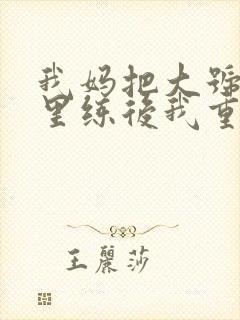 我妈把大號
里练後我重
王麗莎